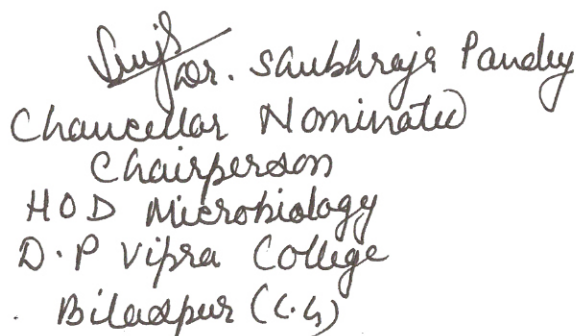 Dr. Saubhragr Pandey
Chancellor Nominated
Chairperson
HOD Microbiology
D.P Vipra College
Bilaspur (C.G)